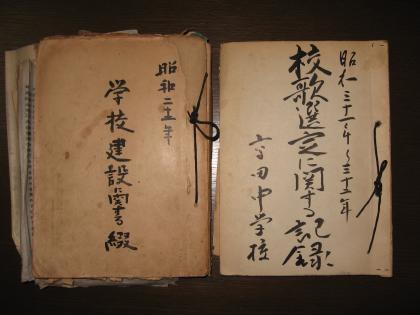 昭和二十二年
学校建設に関する書綴
昭和三十一年〜三十二年
校歌選定に関する記録
高田中学校